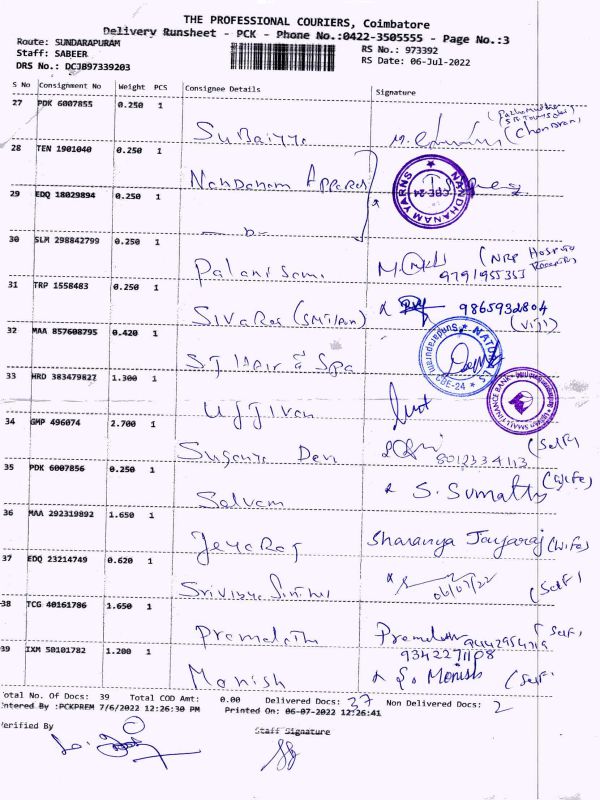 THE PROFESSIONAL COURIERS, Coimbatore
Delivery Runsheet - PCK - Phone No.:0422-3505555 - Page No.:3
Route: SUNDARAPURAM
Staff: SABEER
DRS No.: DCJB97339203
RS No.: 973392
RS Date: 06-Jul-2022
S No Consignment No Weight PCS Consignee Details Signature
27 PDK 6007855 0.250 1
(Chandran)
28 TEN 1901040 0.250 1
Nandanam Apparels
NANDHANAM YARNS CBE-24
29 EDQ 18029894 0.250 1
30 SLM 298842799 0.250 1
Palanisami (NRP Hospital
9791955353
31 TRP 1558483 0.250 1
Sivaraj 9865932804
(Viji)
32 MAA 857608795 0.420 1
S.J Hair & Spa
Sundarapuram CBE-24
33 HRD 383479827 1.300 1
Ujjivan
SMALL FINANCE BANK
34 GMP 496074 2.700 1
Suganya Devi 8012334113 (Self)
35 PDK 6007856 0.250 1
Selvam S. Sumathi (Wife)
36 MAA 292319892 1.650 1
Jeyaraj Sharanya Jayaraj (Wife)
37 EDQ 23214749 0.620 1
06/07/22 (Self)
38 TCG 40161786 1.650 1
Premalatha Premalatha (Self)
9342271108
39 IXM 50101782 1.200 1
Monish S. Monish (Self)
Total No. Of Docs: 39 Total COD Amt: 0.00 Delivered Docs: 37 Non Delivered Docs: 2
Entered By :PCKPREM 7/6/2022 12:26:30 PM Printed On: 06-07-2022 12:26:41
Verified By Staff Signature